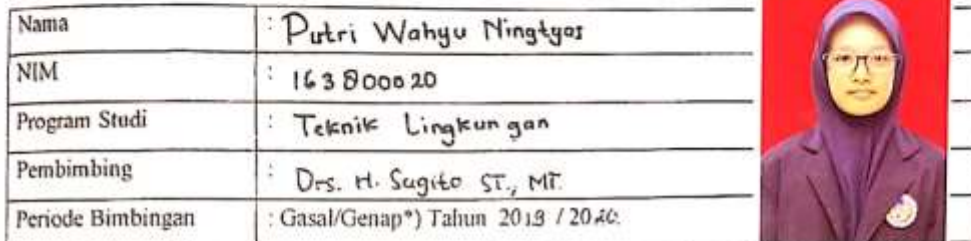 Nama : Putri Wahyu Ningtyas
NIM : 163800020
Program Studi : Teknik Lingkungan
Pembimbing : Drs. H. Sugito ST., MT.
Periode Bimbingan : Gasal/Genap*) Tahun 2019 / 2020.